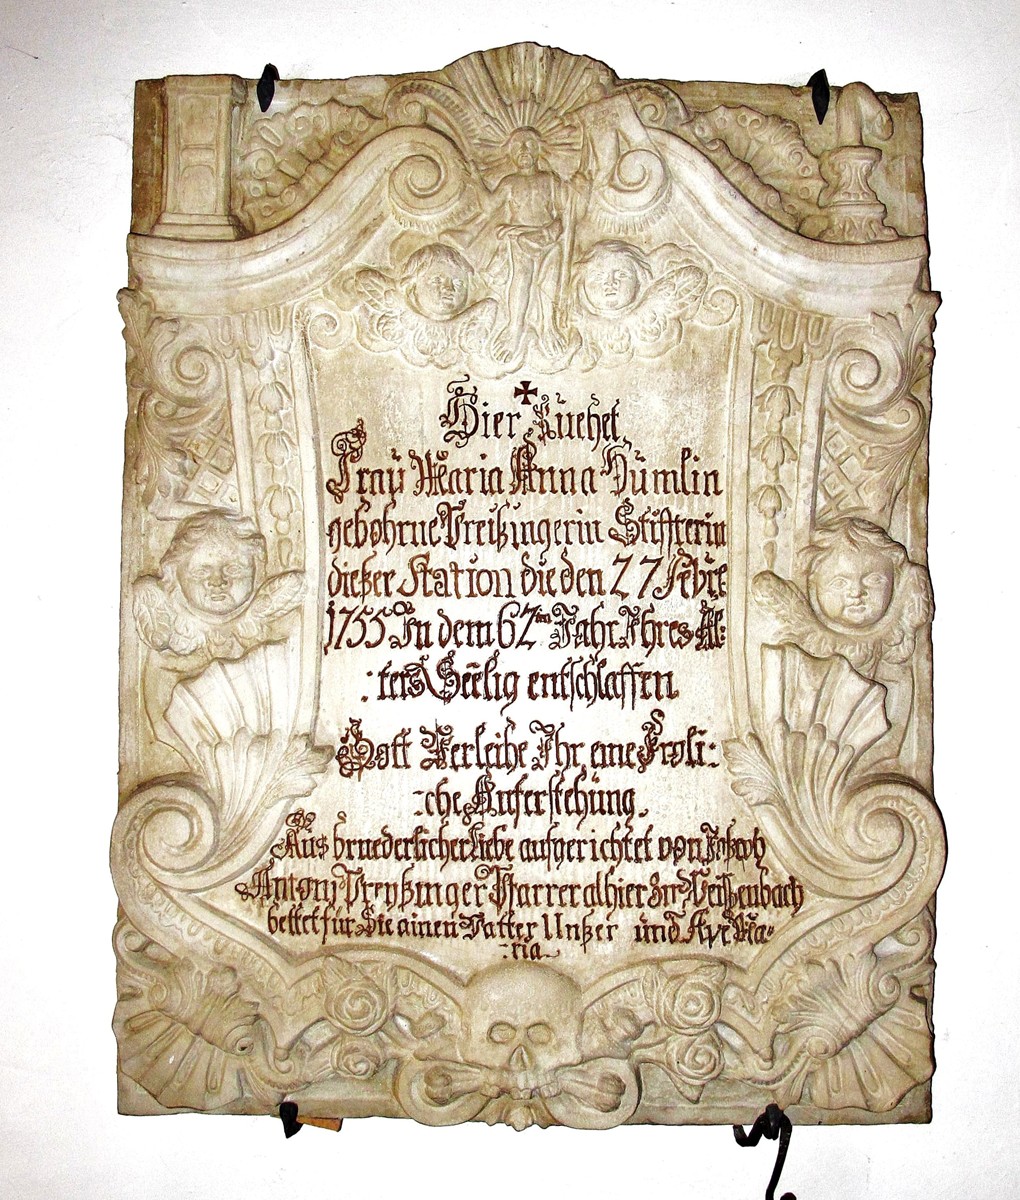 Hier Ruehet
Frau Maria Anna Humlin
gebohrne Preißingerin Stiffterin
dießer Station die den 27 Febr
1755 In dem 62ten Jahr Ihres Al:
:ters Seelig entschlaffen
Gott Verleihe Ihr eine Fröli:
:che Auferstehüng.
Aus bruederlicher liebe aufgerichtet von Jakob
Antony Preyßinger Pfarrer alhier zu Weissenbach
bettet für Sie ainen Vatter Unßer und Ave Ma-
:ria